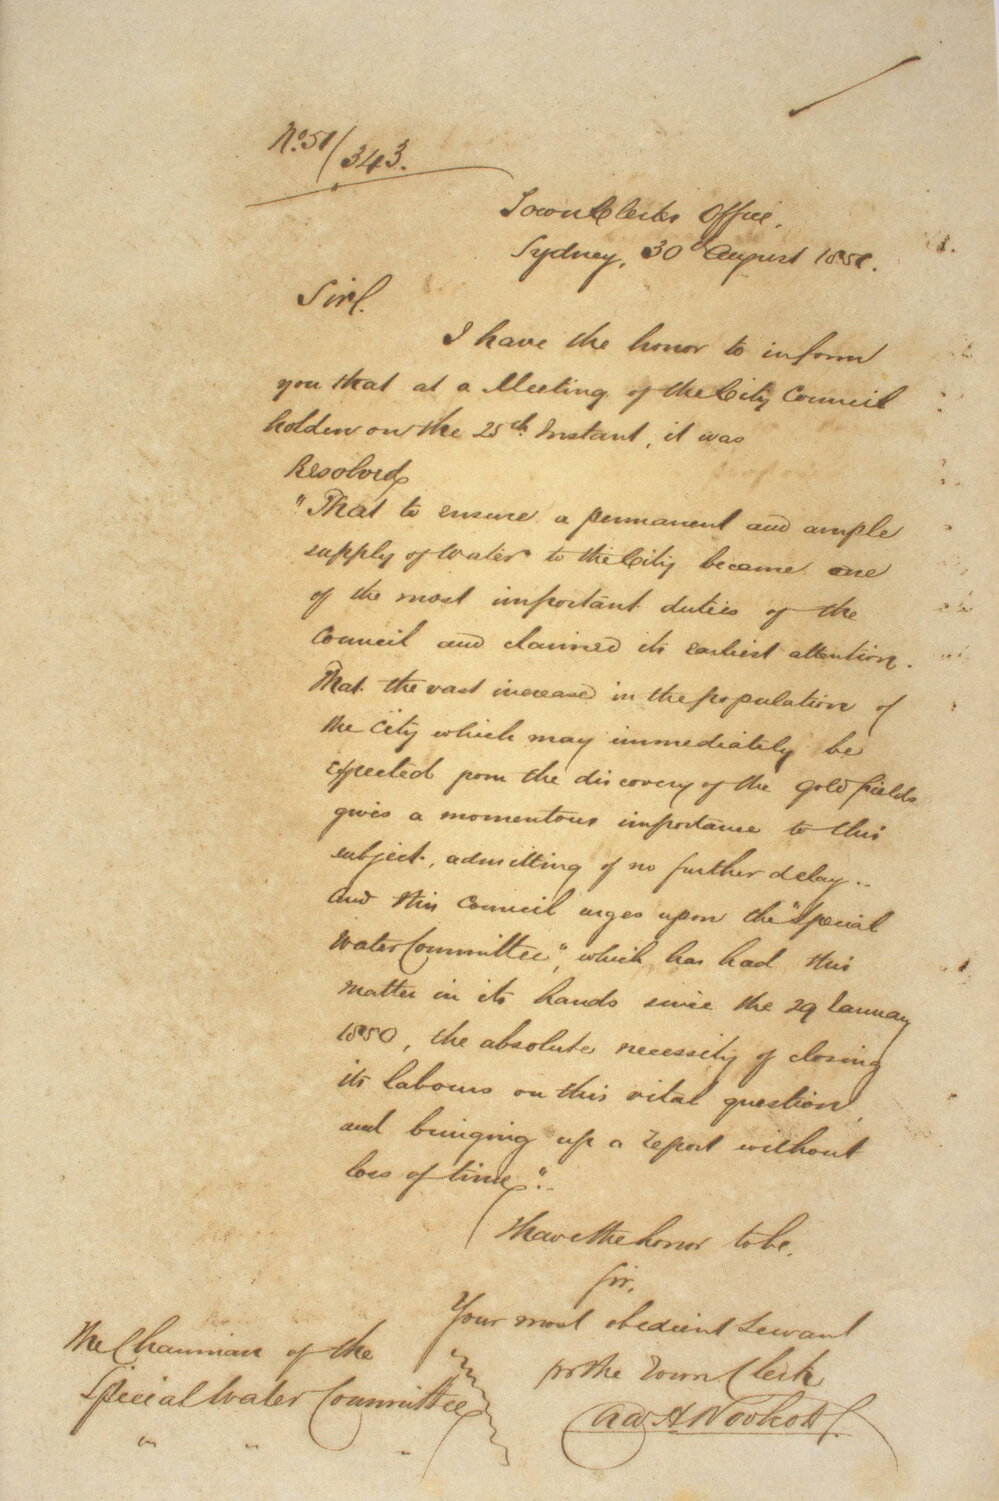 No. 51/343.
Town Clerks Office,
Sydney, 30 August 1851.
Sir,
I have the honor to inform
you that at a Meeting of the City Council
holden on the 25th Instant, it was
Resolved,
"That to ensure a permanent and ample
supply of Water to the City became one
of the most important duties of the
Council and claimed its earliest attention.
That the vast increase in the population of
the City which may immediately be
expected from the discovery of the gold fields
gives a momentous importance to this
subject, admitting of no further delay..
And this Council urges upon the "Special
Water Committee", which has had this
matter in its hands since the 29 January
1850, the absolute necessity of closing
its labours on this vital question,
and bringing up a report without
loss of time".
I have the honor to be,
Sir,
Your most obedient Servant
pr the Town Clerk
The Chairman of the
Special Water Committee
" " "